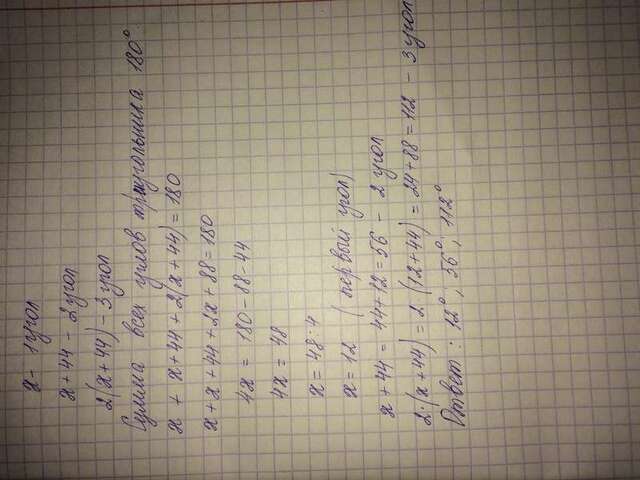 x - 1 угол
x + 44 - 2 угол
2(x + 44) - 3 угол
Сумма всех углов треугольника 180°
x + x + 44 + 2(x + 44) = 180
x + x + 44 + 2x + 88 = 180
4x = 180 - 88 - 44
4x = 48
x = 48 : 4
x = 12 (первый угол)
x + 44 = 44 + 12 = 56 - 2 угол
2·(x + 44) = 2 (12 + 44) = 24 + 88 = 112 - 3 угол
Ответ : 12° ; 56° ; 112°